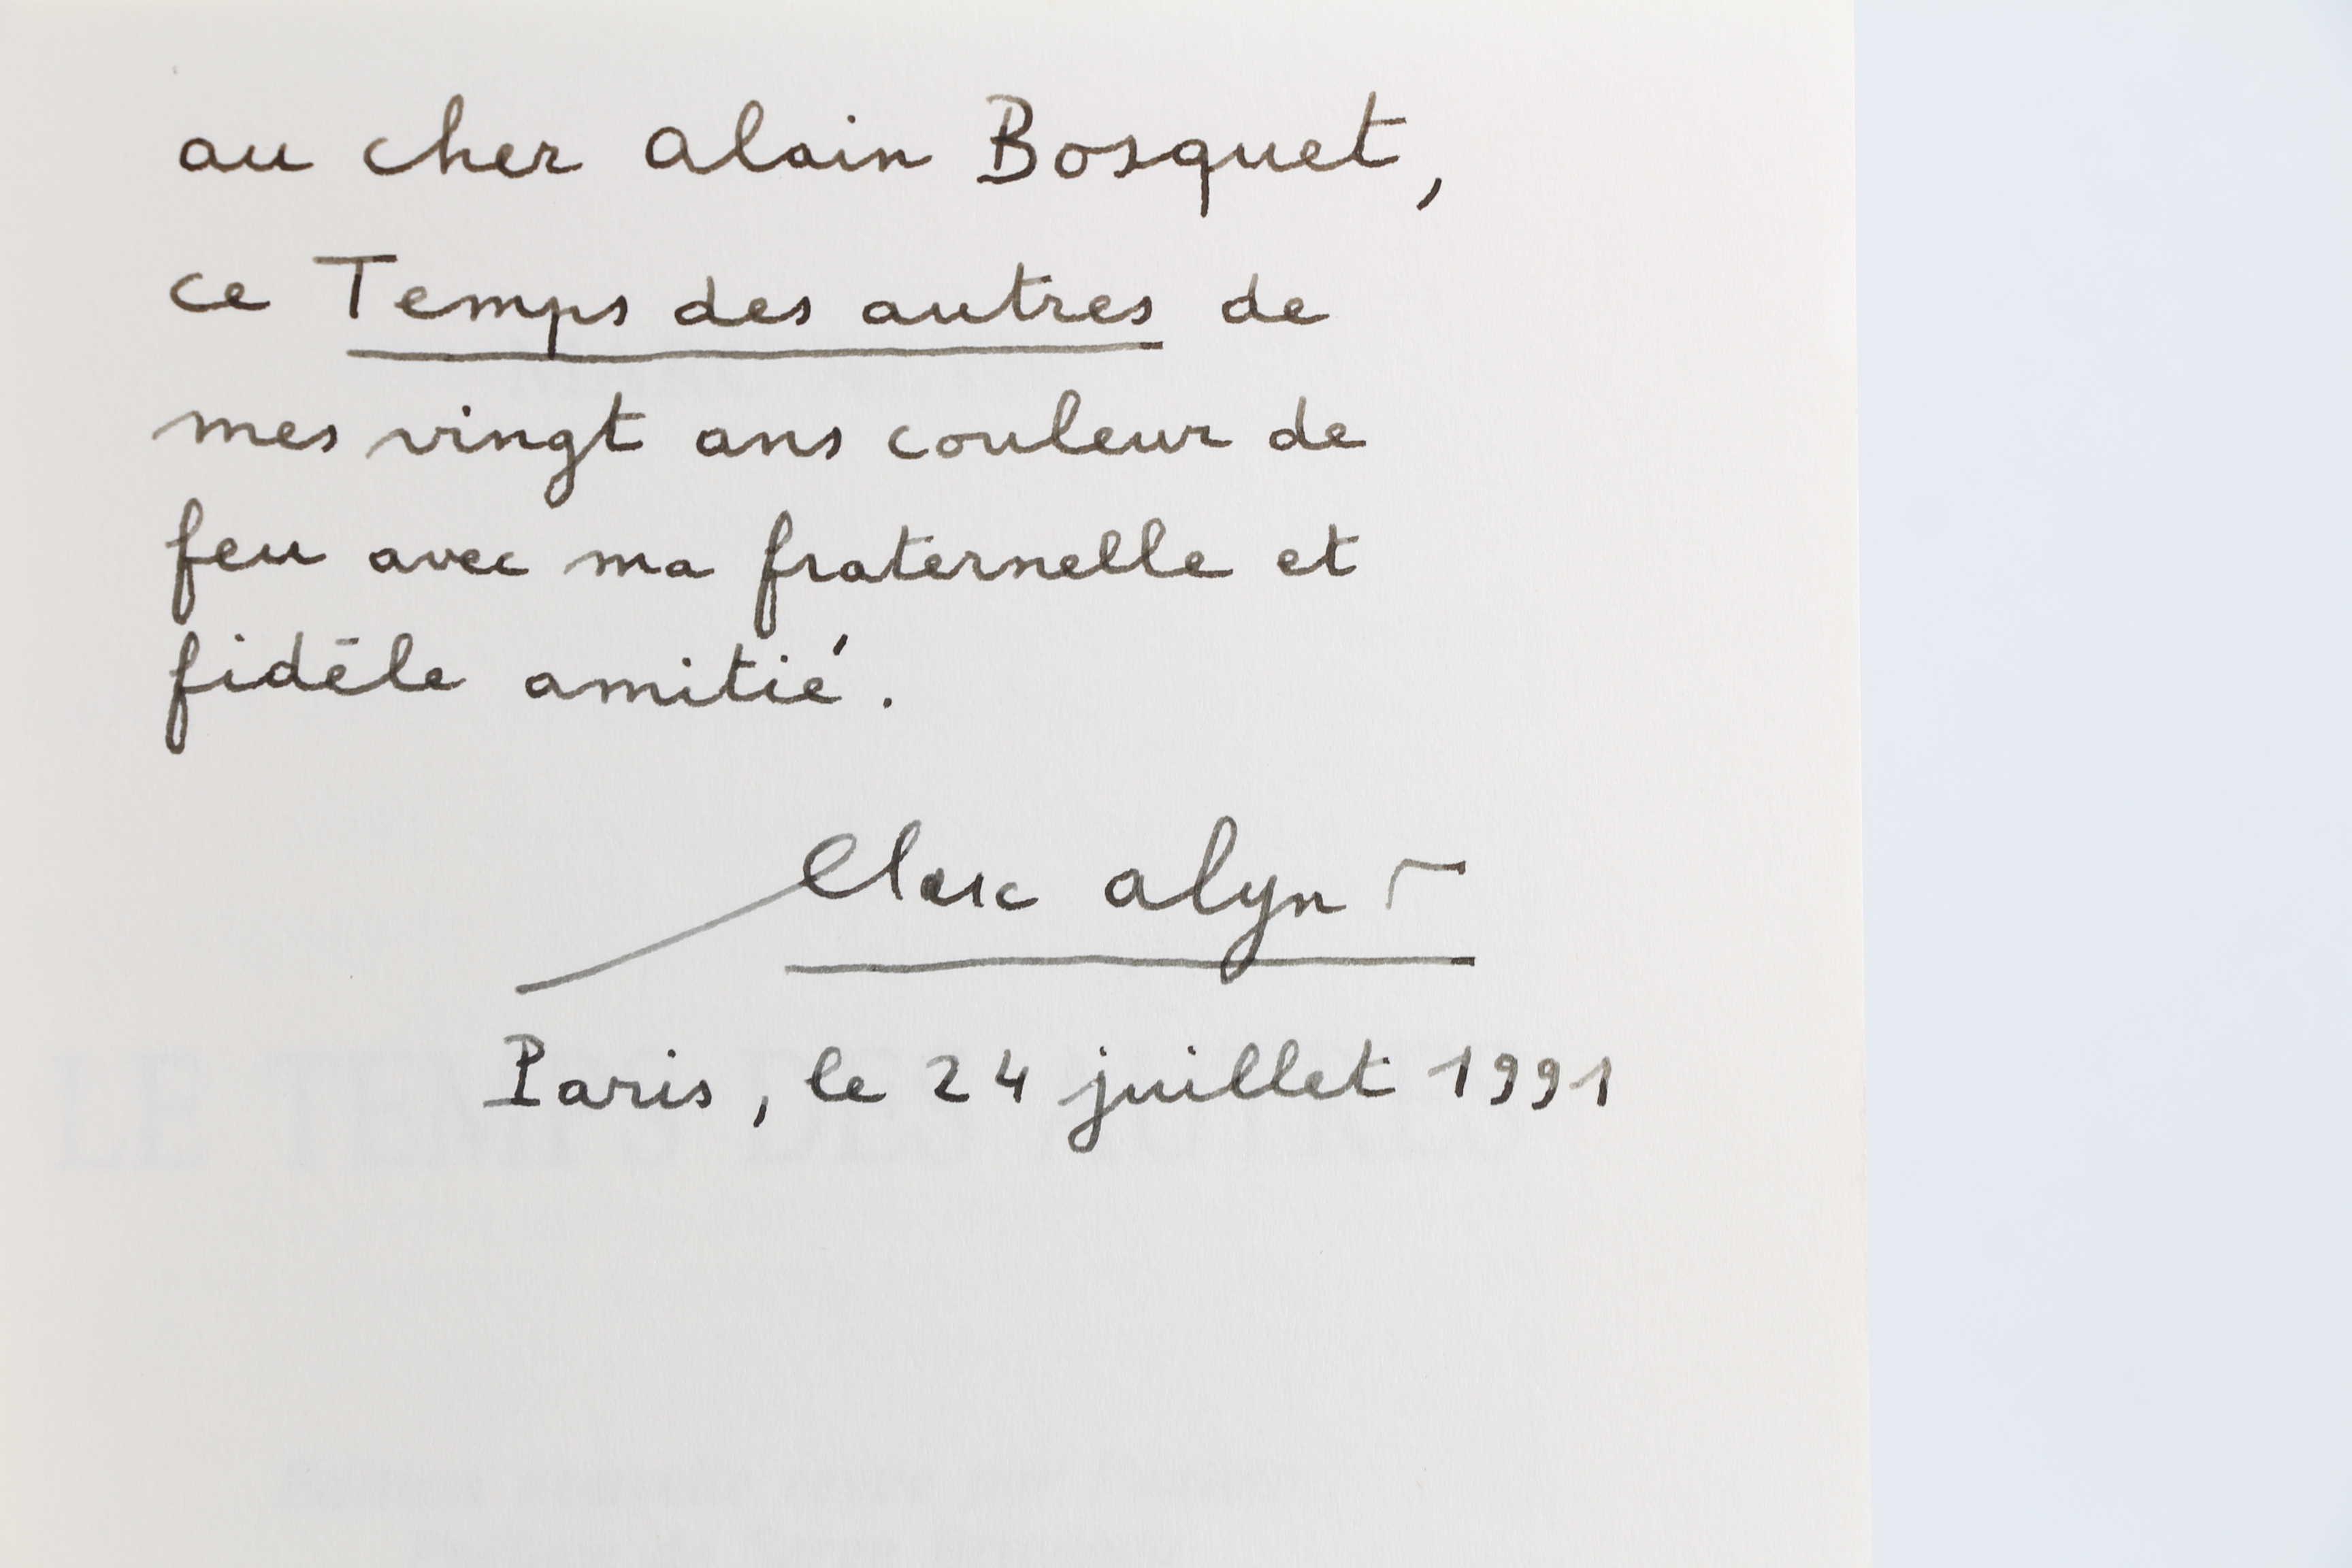 au cher Alain Bosquet,
ce Temps des autres de
mes vingt ans couleur de
feu avec ma fraternelle et
fidèle amitié.
Marc Alyn
Paris, le 24 juillet 1991
LE TEMPS DES AUTRES